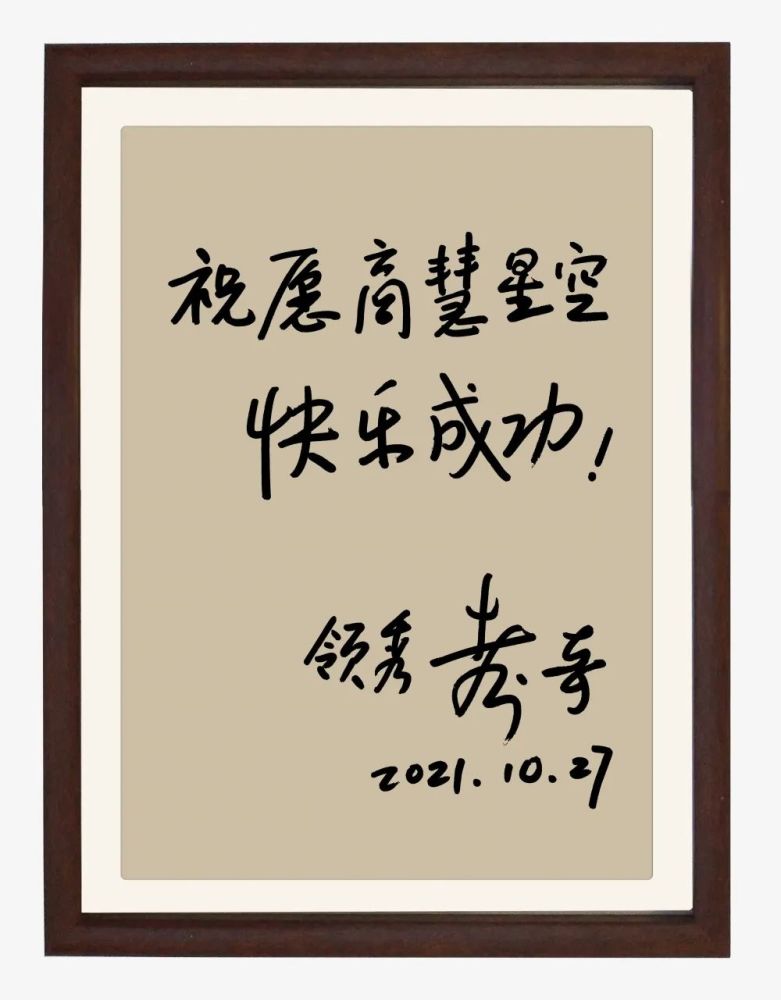 祝愿商慧星空
快乐成功!
领秀 寿奇
2021.10.27